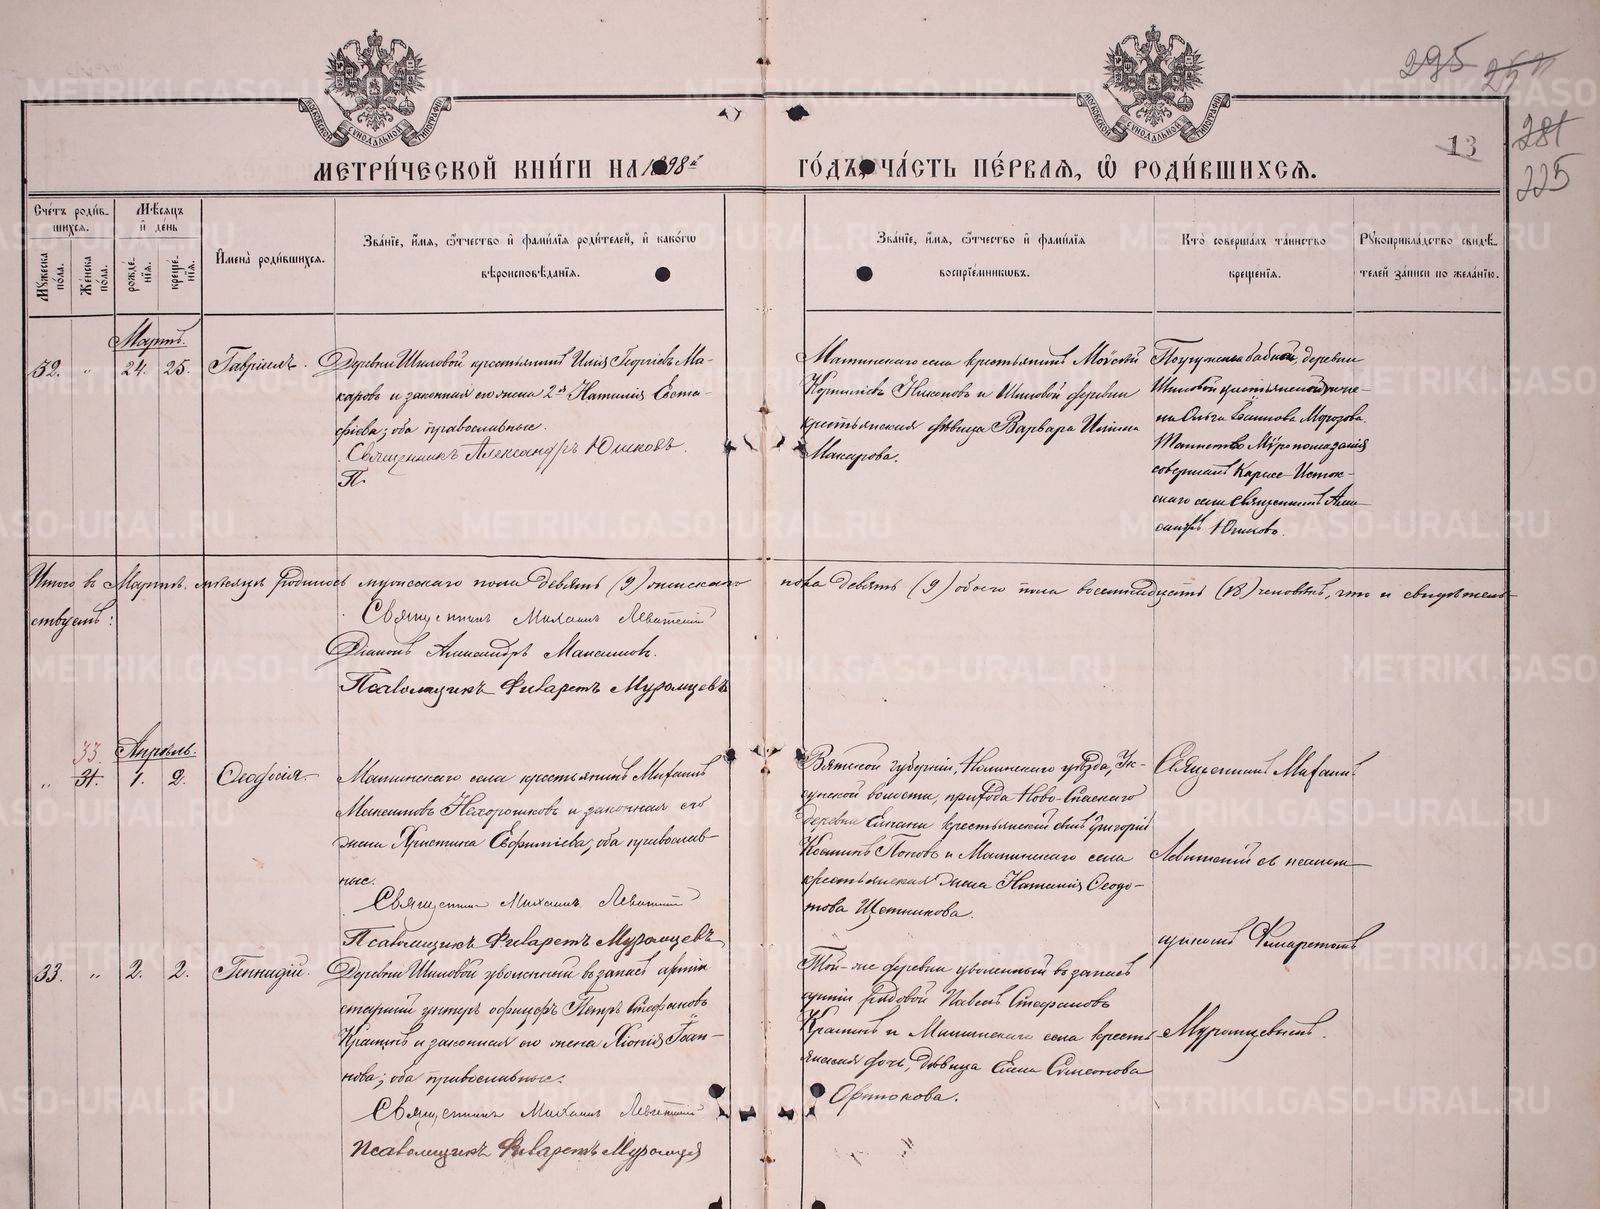 295 257
281
225
13
МОСКОВСКОЙ СѴНОДАЛЬНОЙ ТИПОГРАФІИ
МОСКОВСКОЙ СѴНОДАЛЬНОЙ ТИПОГРАФІИ
МЕТРИ́ЧЕСКОЙ КНИ́ГИ НА 1898й ГО́ДЪ, ЧА́СТЬ ПЕ́РВАЯ, Ѡ РОДИ́ВШИХСЯ.
Сче́тъ роди́в-
шихся.
Мꙋжеска по́ла.
Же́нска по́ла.
Мѣ́сяцъ и́ де́нь
рожде́-нїя.
креще́-нїя.
И҆мена̀ роди́вшихся.
Зва́нїе, и҆́мя, ѻ҆́тчество и҆ фами́лїя роди́телей, и҆ како́гѡ
вѣроисповѣ́данїя.
Зва́нїе, и҆́мя, ѻ҆́тчество и҆ фами́лїя
воспрїе́мникѡвъ.
Кто̀ соверша́лъ та́инство
креще́нїя.
Рꙋкоприкла́дство свидѣ́-
телей за́писи по жела́нїю.
Мартъ.
32. " 24. 25. Гавріилъ.
Деревни Шиловой крестьянинъ Илія Георгіевъ Ма-
каровъ и законная его жена 2я Наталия Евста-
фіева; оба православные.
Священникъ Александръ Юшковъ.
П.
Маминскаго села крестьянинъ Мойсей
Никоновъ и Шиловой деревни
крестьянская дѣвица Варвара Иліина
Макарова.
бабкой, деревни
Шиловой крестьянской
на Ольга Іоаннова Морозова.
Таинство Мѵропомазанія
совершалъ Исток-
скаго села священникъ Алек-
сандръ Юшковъ.
Итого въ Мартѣ мѣсяцѣ родилось мужескаго пола девять (9) женскаго пола девять (9) обоего пола восемнадцать (18) человѣкъ, что и свидѣтель-
ствуемъ:
Священникъ Михаилъ Левитскій
Діаконъ Александръ Максимов.
Псаломщикъ Филаретъ Муромцевъ
33. Апрѣль.
" 31. 1. 2. Ѳеодосія.
Маминскаго села крестьянинъ Михаилъ
Нехорошковъ и законная его
жена Христина Евфиміева; оба православ-
ные.
Священникъ Михаилъ Левитскій
Псаломщикъ Филаретъ Муромцевъ
Вятской губерніи, Нолинскаго уѣзда,
волости, прихода Ново-Спаскаго
деревни крестьянскій сынъ Григорій
Поповъ и Маминскаго села
крестьянская жена Наталія Ѳеодо-
това Щетникова.
Священникъ Михаилъ
Левитскій съ псалом-
щикомъ Филаретомъ
Муромцевымъ.
33. " 2. 2. Геннадій.
Деревни Шиловой уволенный въ запасъ арміи
старшій унтеръ офицеръ Петръ Стефановъ
и законная его жена Хіонія Іоан-
нова; оба православные.
Священникъ Михаилъ Левитскій
Псаломщикъ Филаретъ Муромцев
Той-же деревни уволенный въ запасъ
арміи рядовой Павелъ Стефановъ
и Маминскаго села кресть-
янская дочь, дѣвица Елена Симеонова